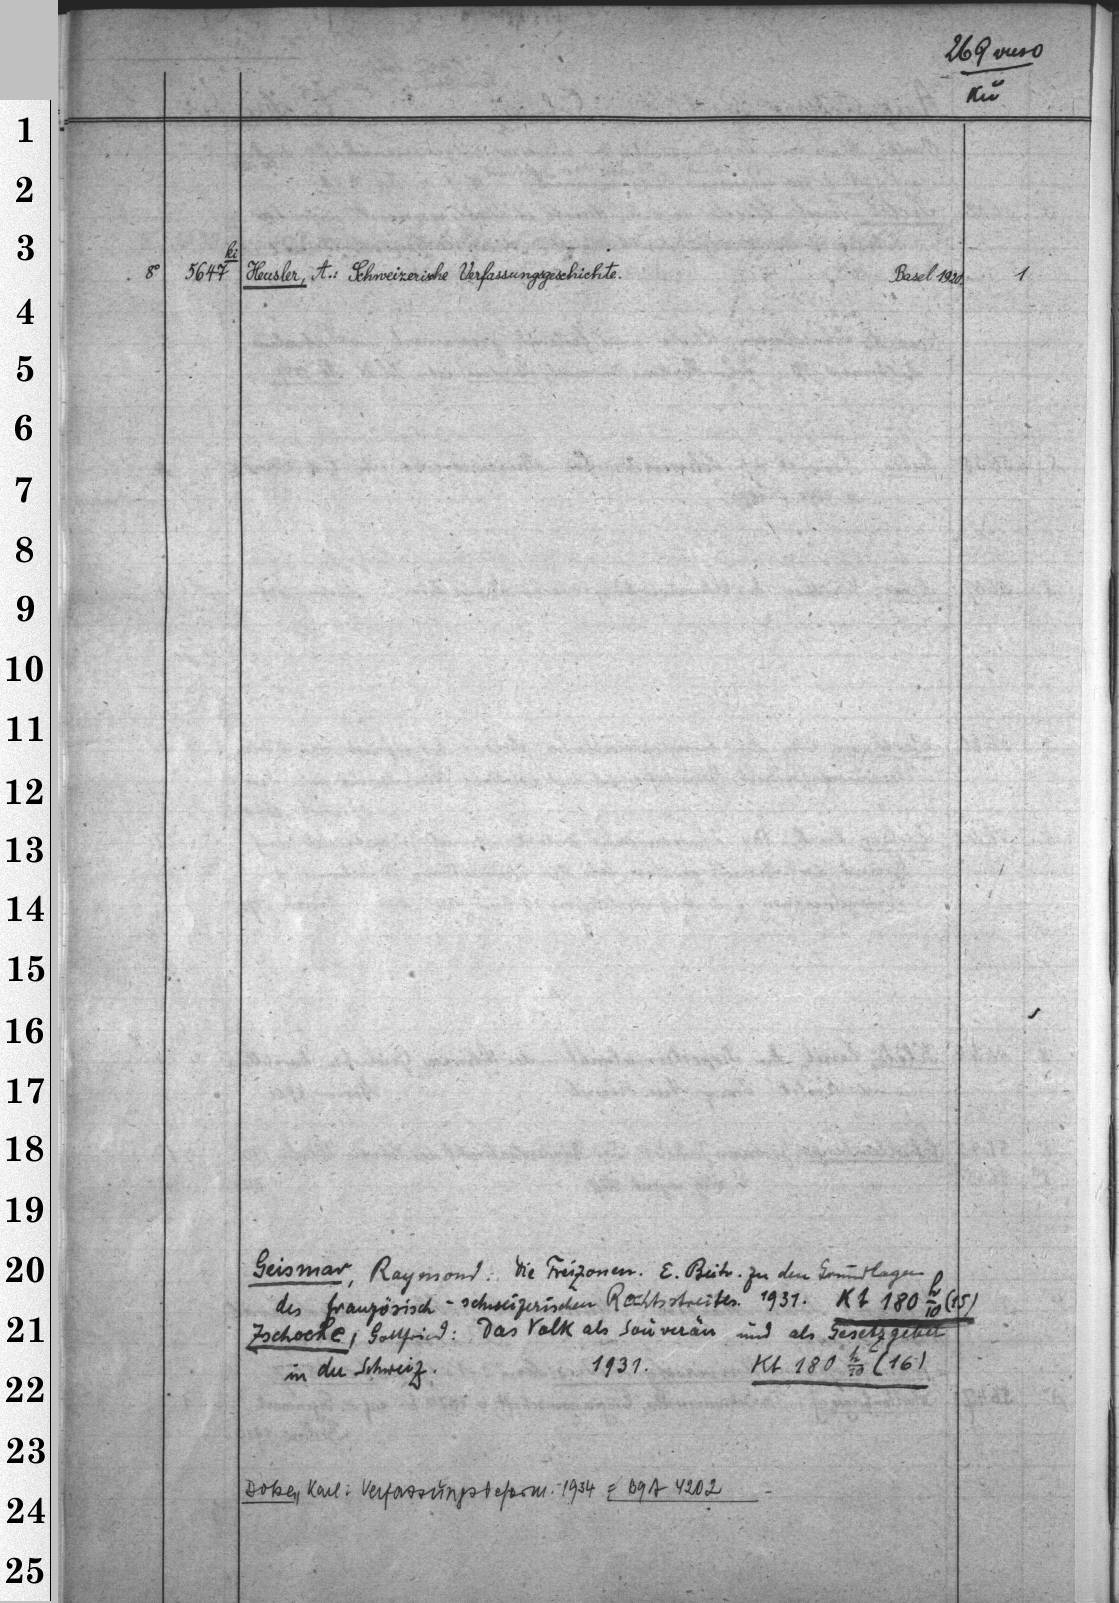 269 verso
Kü
1
2
3
ki
8° 5647 Heusler, A.: Schweizerische Verfassungsgeschichte. Basel 1920. 1
4
5
6
7
8
9
10
11
12
13
14
15
16
17
18
19
20
Geismar, Raymond: Die Freizonen. E. Beitr. zu den Grundlagen
des französisch-schweizerischen Rechtsstreites. 1931. Kt 180 h/10 (15)
21
Zschocke, Gottfried: Das Volk als Souverän und als Gesetzgeber
in der Schweiz. 1931. Kt 180 h/10 (16)
22
23
Karl: Verfassungsreform. 1934 = 4202
24
25